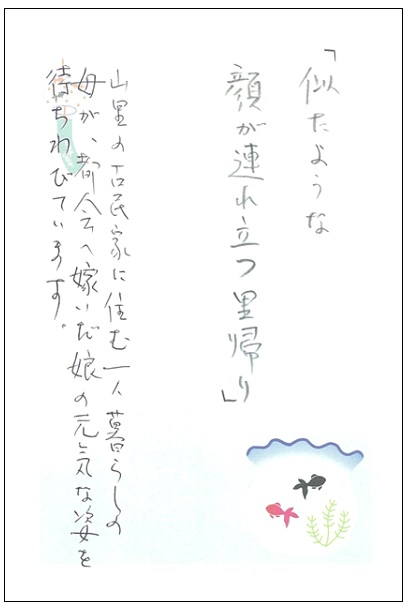 「似たような
顔が連れ立つ里帰り」
山里の古民家に住む一人暮らしの
母が、都会へ嫁いだ娘の元気な姿を
待ちわびています。